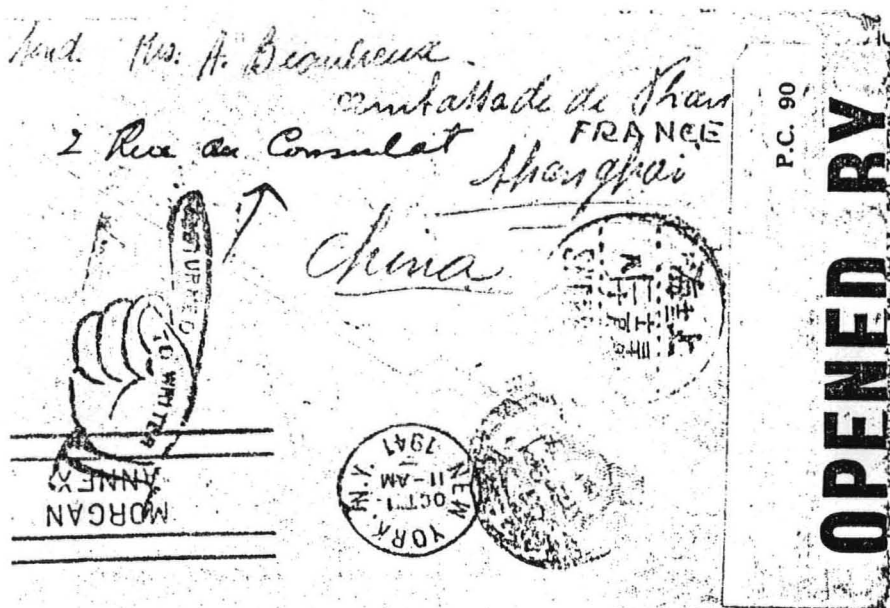 Mrs. A. Beaulieux
ambassade de
FRANCE
2 Rue du Consulat
Shanghai
China
RETURNED
TO WRITER
MORGAN
ANNEX
NEW YORK, N.Y.
OCT 1
11-AM
1941
P.C. 90
OPENED BY